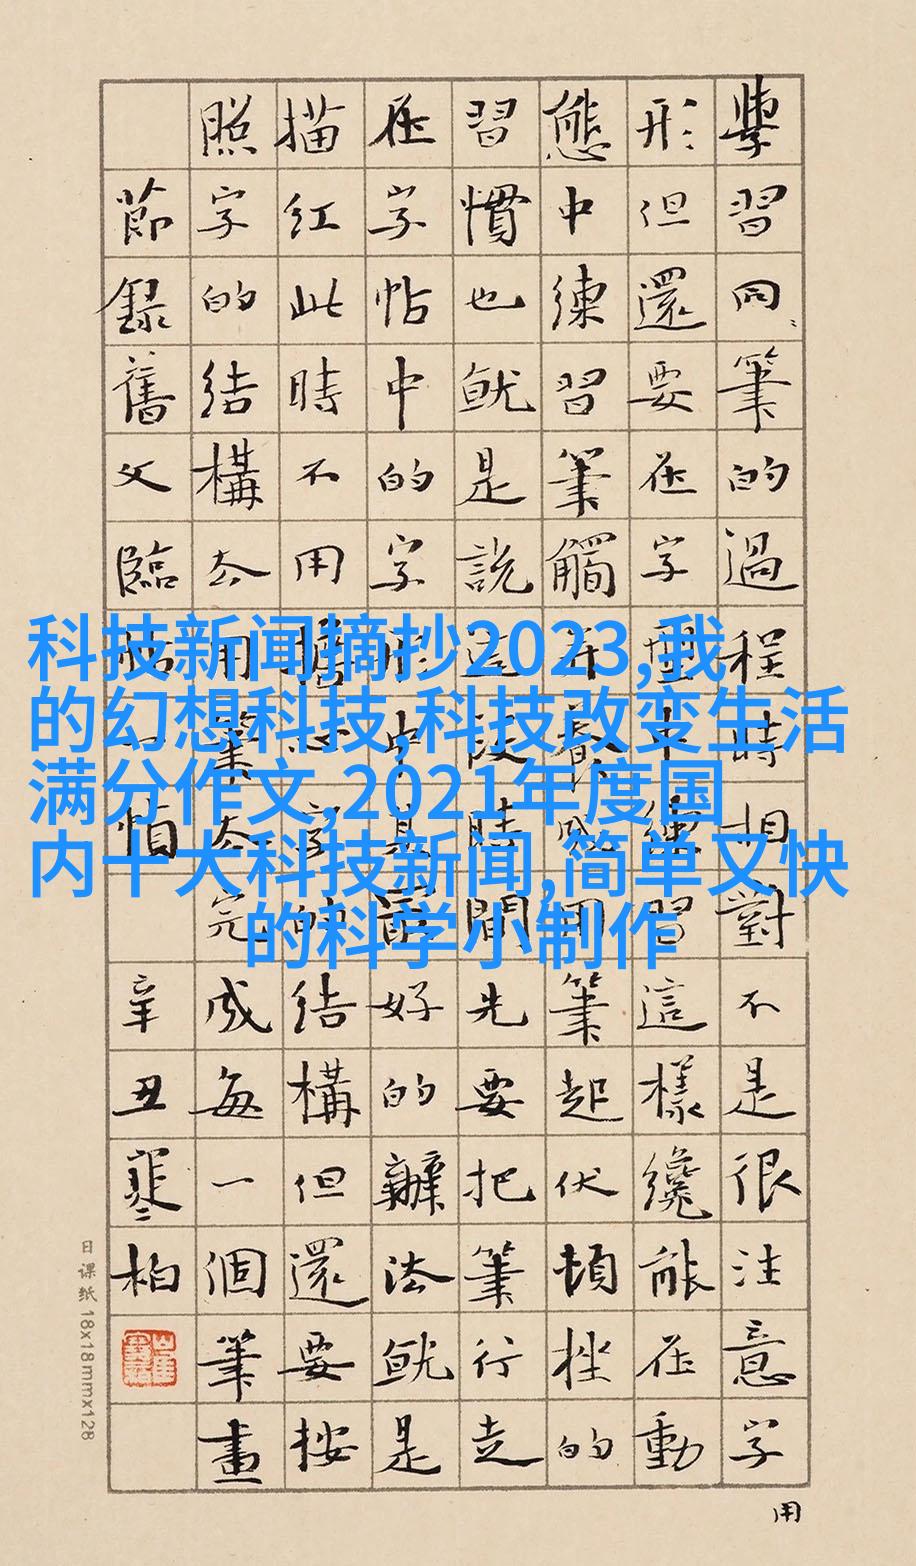 科技新闻摘抄2023,我
的幻想科技,科技改变生活
满分作文,2021年度国
内十大科技新闻,简单又快
的科学小制作
學習同筆的過程時相對不是很注意字
形但還要在字中練習這樣纔能在動
態中練習筆觸并養成用筆起伏頓挫的
習慣也就是說這段時間先要把筆行走
在字帖中的字形中最好的辦法就是
描紅此時不用擔心字的結構但還要按
照字的結構去用筆去完成每一個筆畫
節錄舊文臨帖怕
辛丑寒柏
用
日课纸 18x18mmx128